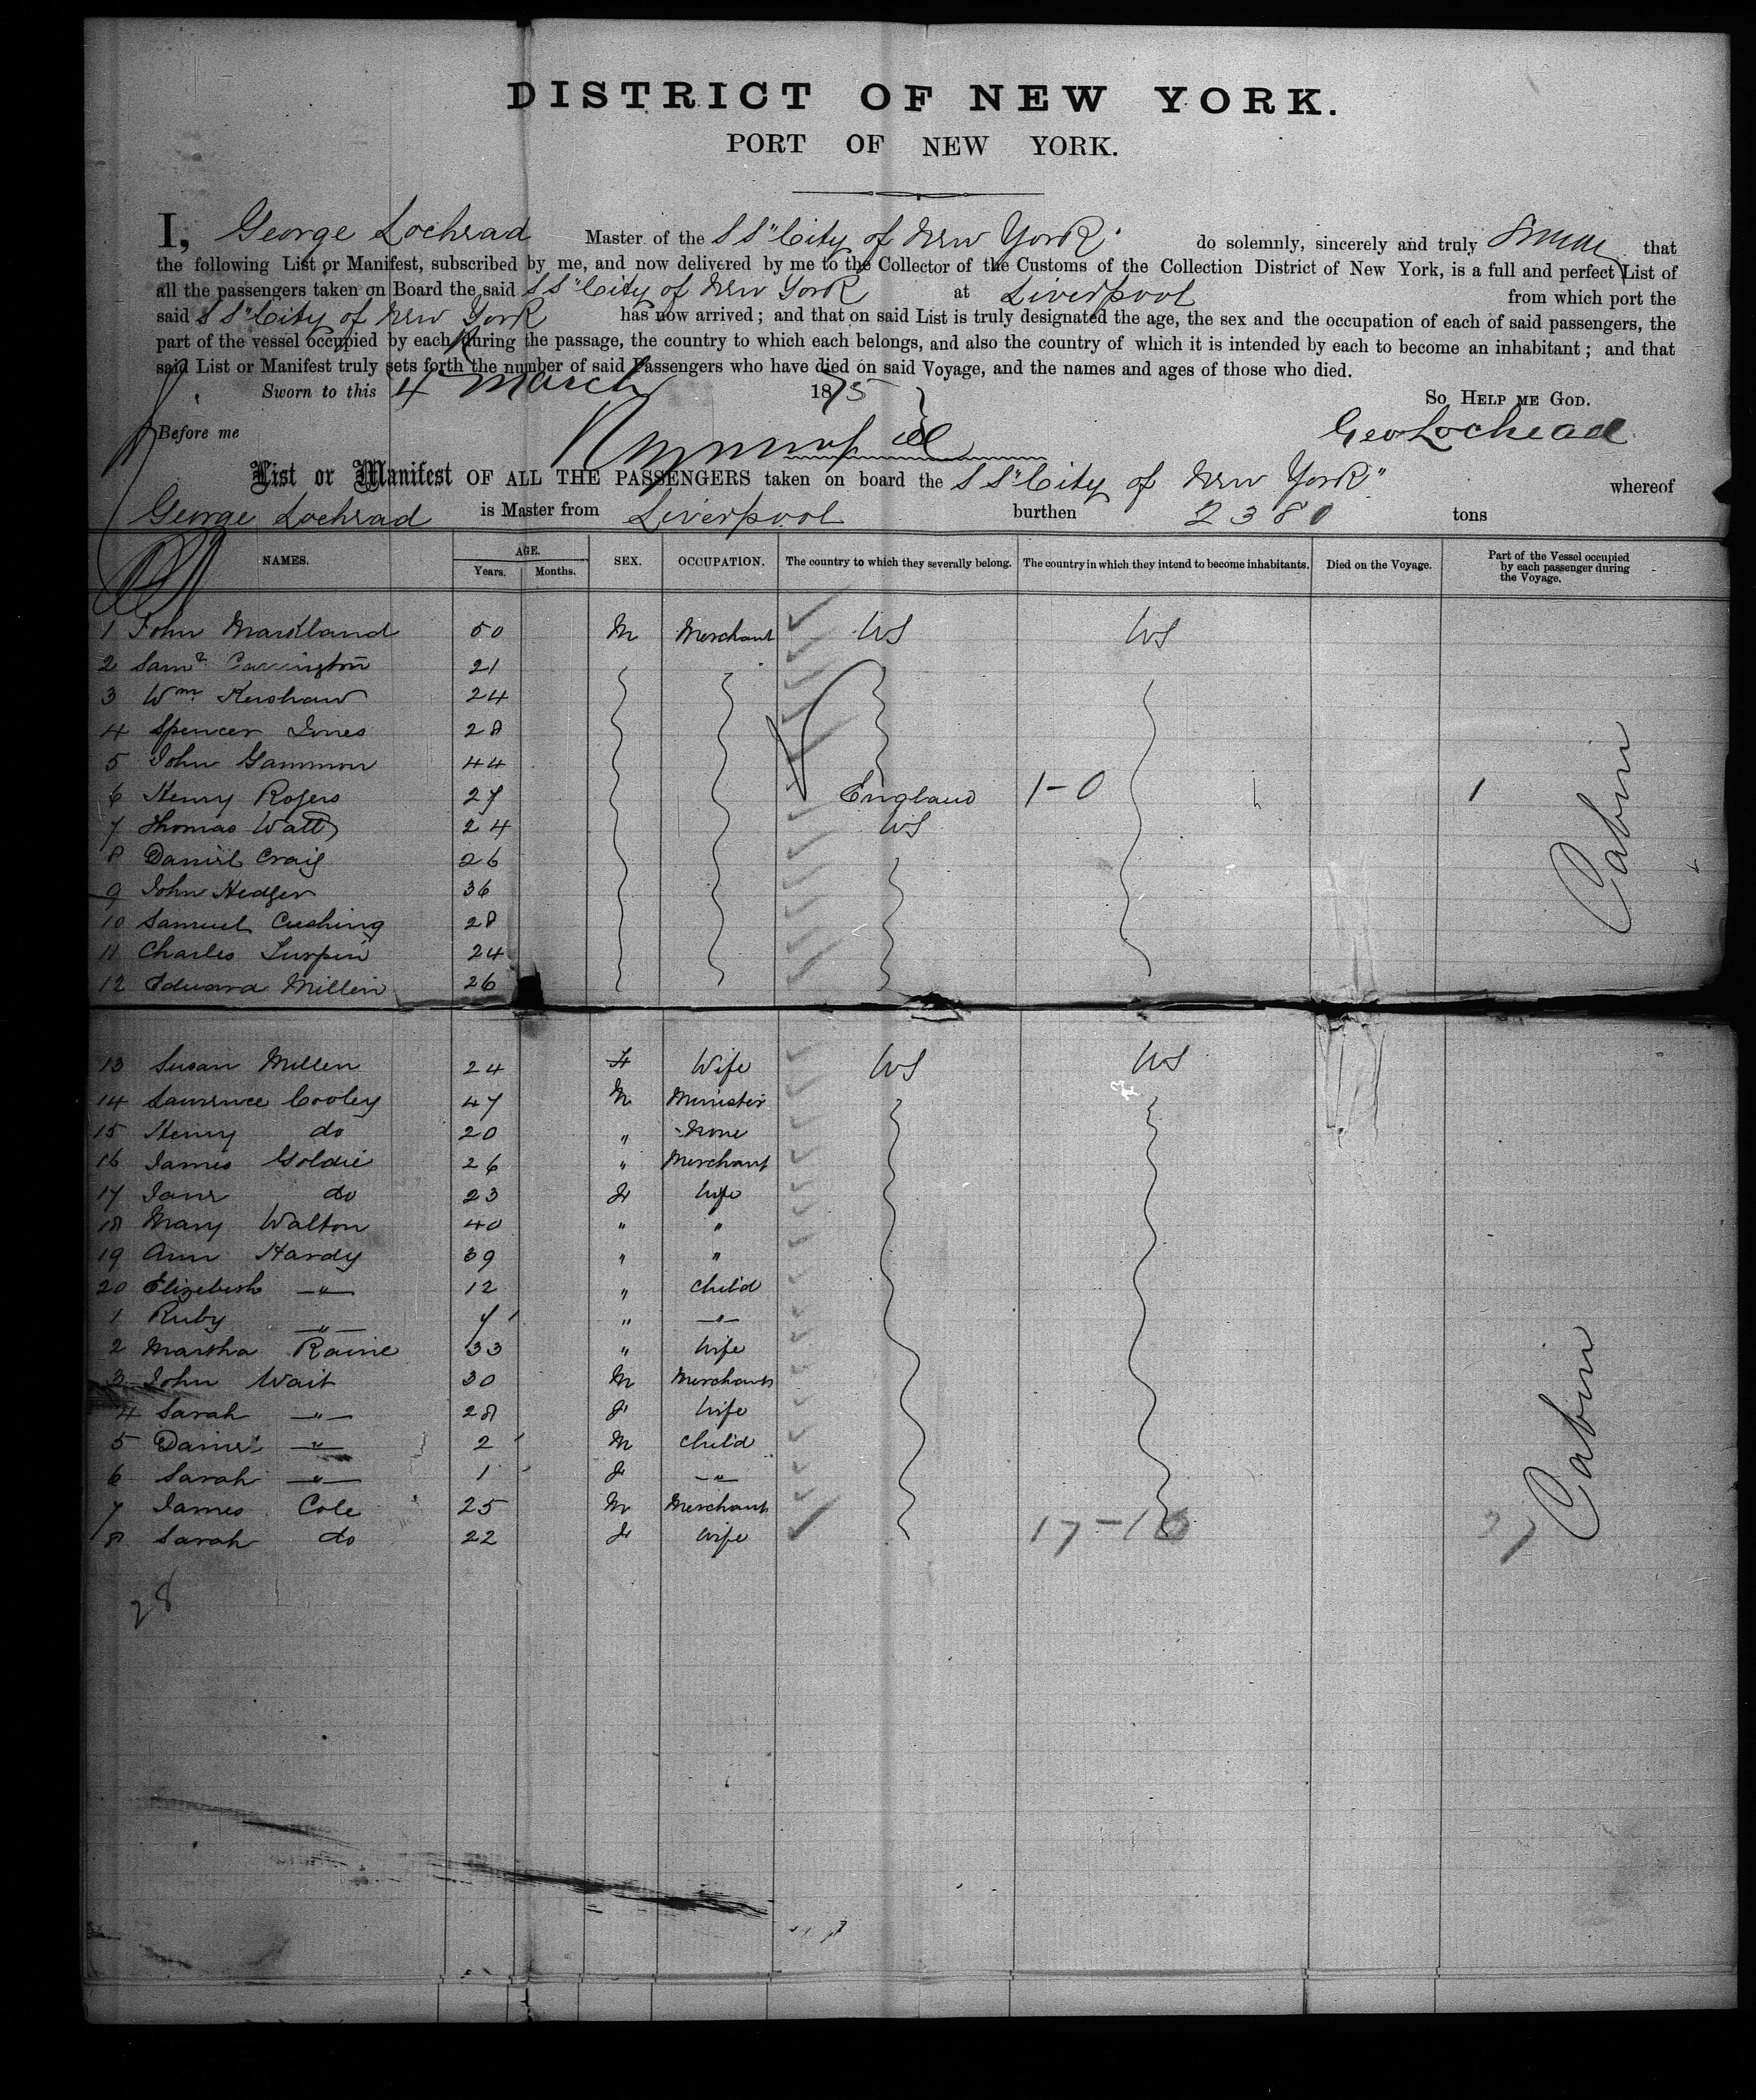 DISTRICT OF NEW YORK.
PORT OF NEW YORK.
I, George Lochead Master of the SS "City of New York" do solemnly, sincerely and truly swear that
the following List or Manifest, subscribed by me, and now delivered by me to the Collector of the Customs of the Collection District of New York, is a full and perfect List of
all the passengers taken on Board the said SS "City of New York at Liverpool from which port the
said SS "City of New York has now arrived; and that on said List is truly designated the age, the sex and the occupation of each of said passengers, the
part of the vessel occupied by each during the passage, the country to which each belongs, and also the country of which it is intended by each to become an inhabitant; and that
said List or Manifest truly sets forth the number of said Passengers who have died on said Voyage, and the names and ages of those who died.
Sworn to this 4 March 1875 So HELP ME GOD.
Before me Geo Lochead
List or Manifest OF ALL THE PASSENGERS taken on board the SS "City of New York" whereof
George Lochead is Master from Liverpool burthen 2380 tons
NAMES. AGE. Years. Months. SEX. OCCUPATION. The country to which they severally belong. The country in which they intend to become inhabitants. Died on the Voyage. Part of the Vessel occupied by each passenger during the Voyage.
1 John Markland 50 M Merchant US US
2 Saml Carrington 21
3 Wm Kershaw 24
4 Spencer Jones 28
5 John Gammon 44
6 Henry Rogers 27 England 1-0 1 Cabin
7 Thomas Watt 24 US
8 Daniel Craig 26
9 John Hedger 36
10 Samuel Cushing 28
11 Charles Turpin 24
12 Edward Millen 26
13 Susan Millen 24 F Wife US US
14 Lawrence Cooley 47 M Minister
15 Henry do 20 " None
16 James Goldie 26 " Merchant
17 Jane do 23 F Wife
18 Mary Walton 40 " "
19 Ann Hardy 39 " "
20 Elizebeth —"— 12 " Child
1 Ruby —"— 7 " —"—
2 Martha Raine 33 " Wife
3 John Wait 30 M Merchant
4 Sarah —"— 28 F Wife
5 Daniel —"— 2 M Child
6 Sarah —"— 1 F —"—
7 James Cole 25 M Merchant
8 Sarah do 22 F Wife 17-10 27 Cabin
28